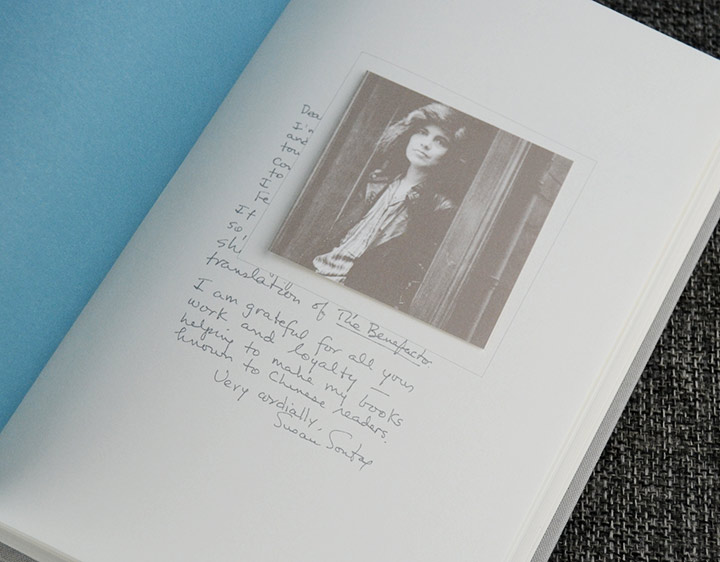 Dea
I'm
and
tou
Con
Ito
Te
It
so
shi
translation of The Benefacto
I am grateful for all your
work and loyalty —
helping to make my books
known to Chinese readers.
Very cordially,
Susan Sontag